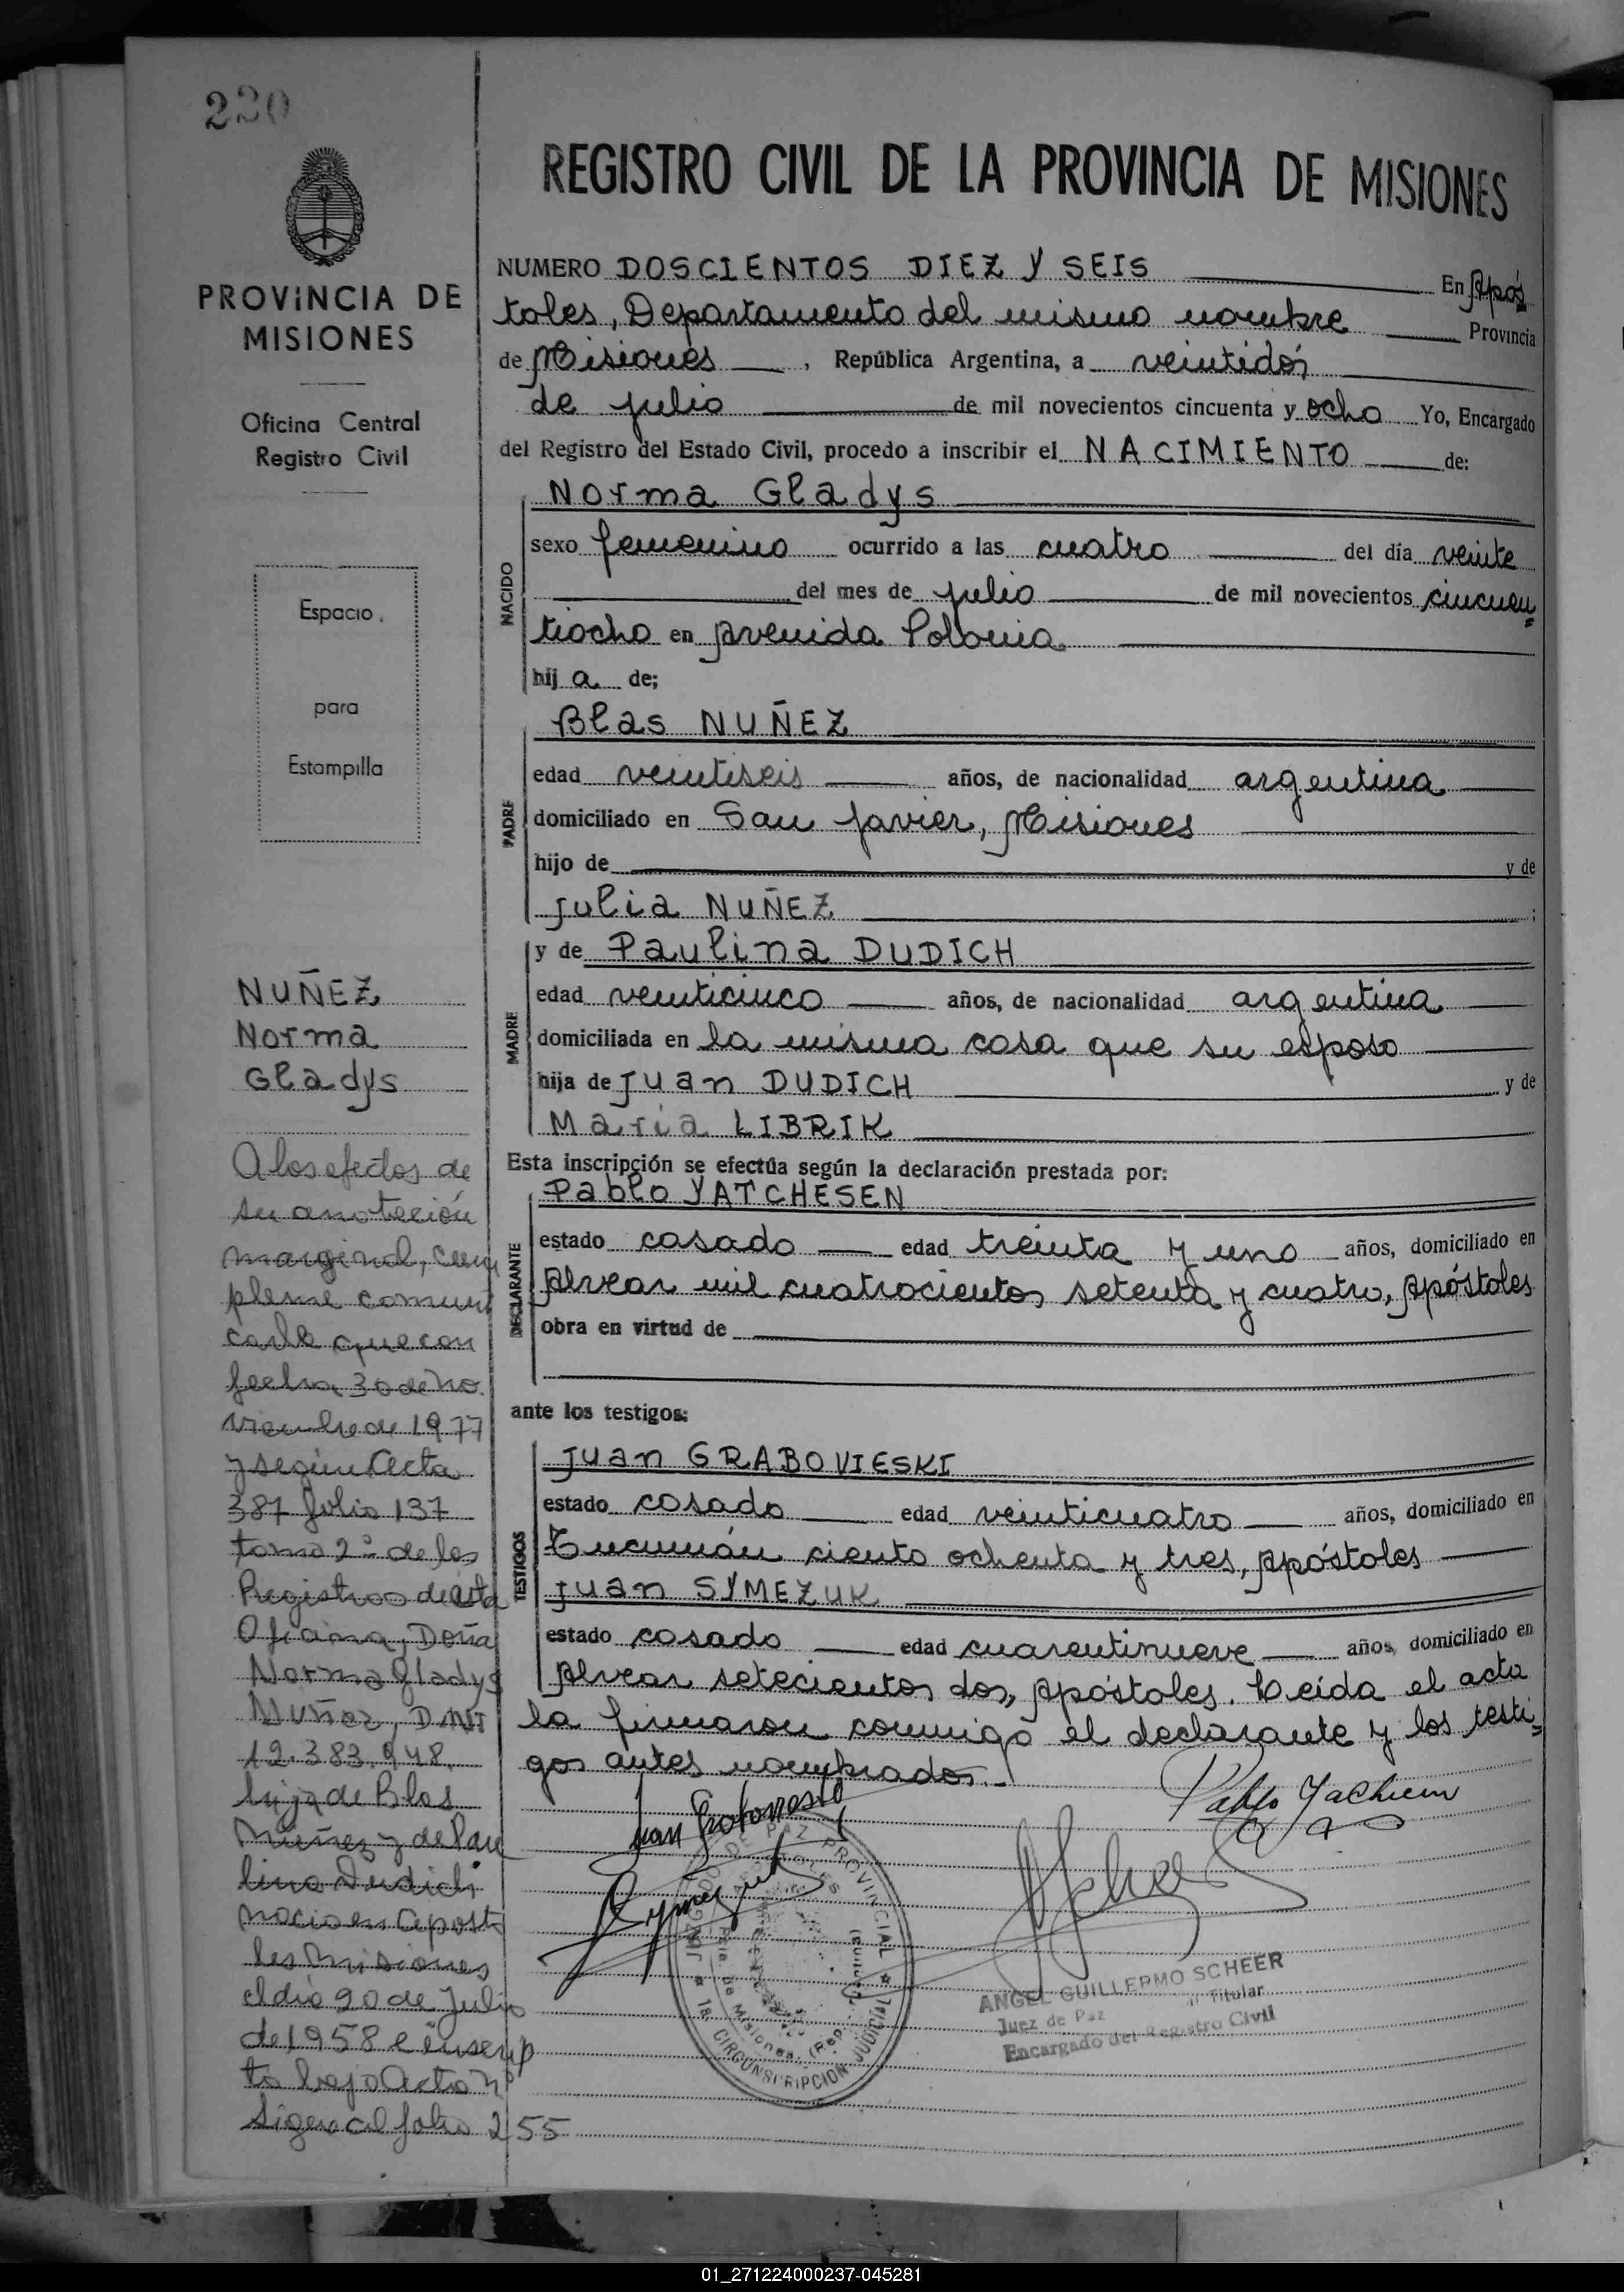 220
PROVINCIA DE
MISIONES
Oficina Central
Registro Civil
Espacio
para
Estampilla
NUÑEZ
Norma
Gladys
A los efectos de
su anotación
marginal, cum
pleme comuni
carle que con
fecha 30 de No.
viembre de 1977
y según Acta
387 folio 137
tomo 2º de los
Registros de ésta
Oficina, Doña
Norma Gladys
Nuñez, DNI
12.383.948
hija de Blas
Nuñez y de Pau
lina Dudich
nacio en Aposto
les Misiones
el día 20 de Julio
de 1958 e inscrip
to bajo Acta nº
sigue al folio 255
REGISTRO CIVIL DE LA PROVINCIA DE MISIONES
NUMERO DOSCIENTOS DIEZ Y SEIS En Após
toles, Departamento del mismo nombre Provincia
de Misiones , República Argentina, a veintidós
de julio de mil novecientos cincuenta y ocho Yo, Encargado
del Registro del Estado Civil, procedo a inscribir el NACIMIENTO de:
NACIDO
Norma Gladys
sexo femenino ocurrido a las cuatro del día veinte
del mes de julio de mil novecientos cincuen=
tiocho en Avenida Polonia
hij a de;
PADRE
Blas NUÑEZ
edad veintiseis años, de nacionalidad argentina
domiciliado en San Javier, Misiones
hijo de y de
Julia NUÑEZ ;
MADRE
y de Paulina DUDICH
edad veinticinco años, de nacionalidad argentina
domiciliada en la misma casa que su esposo
hija de Juan DUDICH y de
Maria LIBRIK
Esta inscripción se efectúa según la declaración prestada por:
DECLARANTE
Pablo YATCHESEN
estado casado edad treinta y uno años, domiciliado en
Alvear mil cuatrocientos setenta y cuatro, Apóstoles
obra en virtud de
ante los testigos:
TESTIGOS
Juan GRABOVIESKI
estado casado edad veinticuatro años, domiciliado en
Tucumán ciento ochenta y tres, Apóstoles
Juan SYMEZUK
estado casado edad cuarentinueve años, domiciliado en
Alvear setecientos dos, Apóstoles. Leída el acta
la firmaron conmigo el declarante y los testi=
gos antes nombrados.
JUZGADO DE PAZ PROVINCIAL
APOSTOLES
Pcia. de Misiones (Rep.
1a. CIRCUNSCRIPCION JUDICIAL
ANGEL GUILLERMO SCHEER
Juez de Paz Titular
Encargado del Registro Civil
01_271224000237-045281